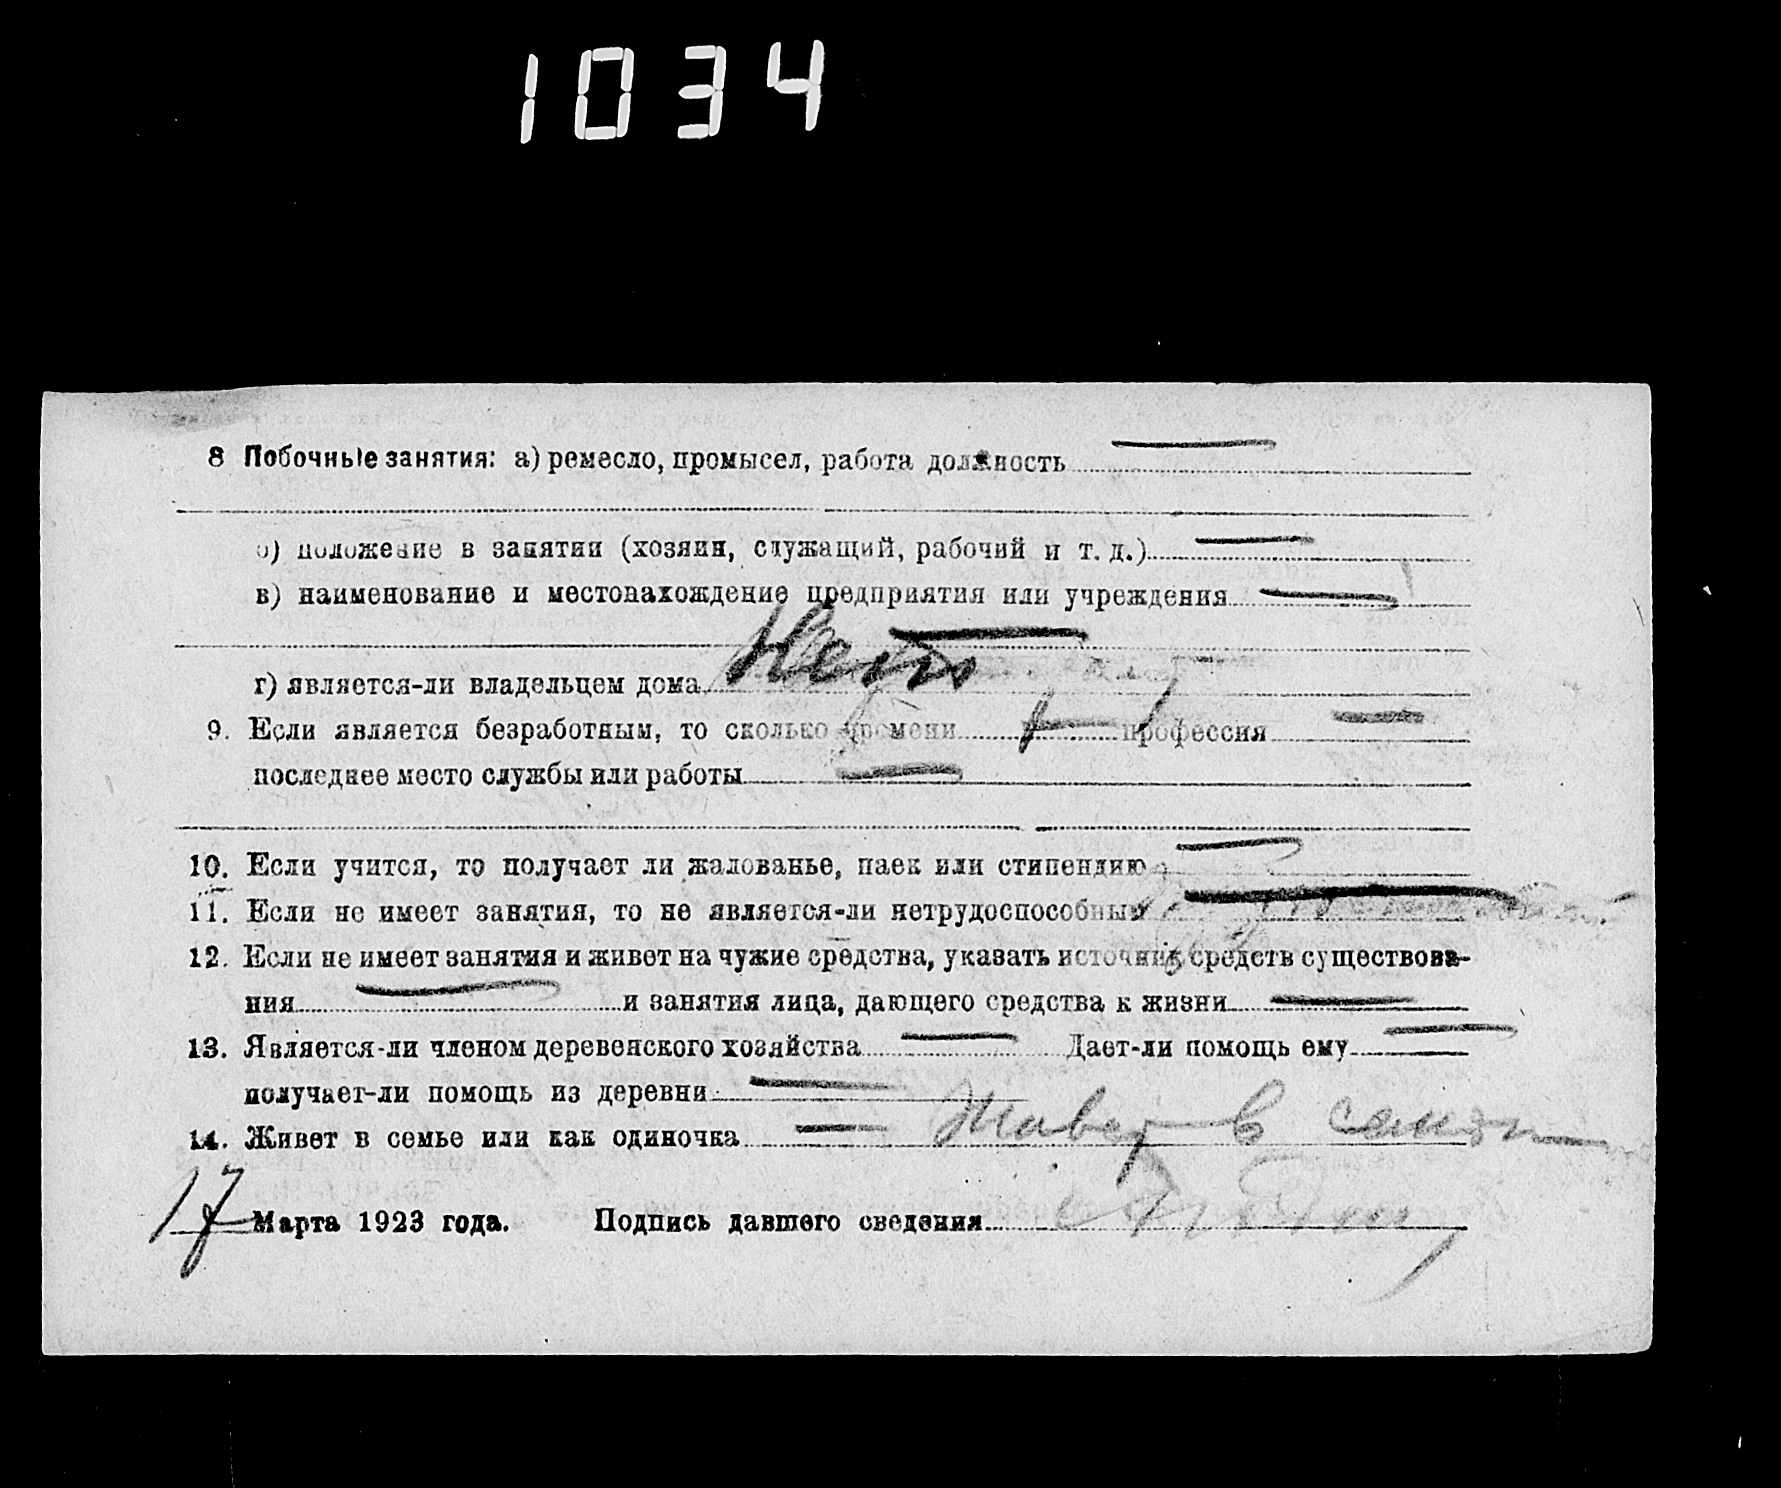 1034
8 Побочные занятия: а) ремесло, промысел, работа должность
б) положение в занятии (хозяин, служащий, рабочий и т. д.)
в) наименование и местонахождение предприятия или учреждения
г) является-ли владельцем дома
9. Если является безработным, то сколько времени профессия
последнее место службы или работы
10. Если учится, то получает ли жалованье, паек или стипендию
11. Если не имеет занятия, то не является-ли нетрудоспособным
12. Если не имеет занятия и живет на чужие средства, указать источник средств существова-
ния и занятия лица, дающего средства к жизни
13. Является-ли членом деревенского хозяйства Дает-ли помощь ему
получает-ли помощь из деревни
14. Живет в семье или как одиночка Живет в семье
17 Марта 1923 года. Подпись давшего сведения